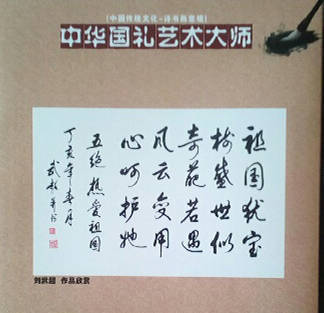 中国传统文化-诗书画
中华国礼艺术大师
祖国犹宝
树盛世似
奇葩若遇
风云变用
心呵护她
五绝 热爱祖国
丁亥年春月
武超并书
刘武超 作品欣赏